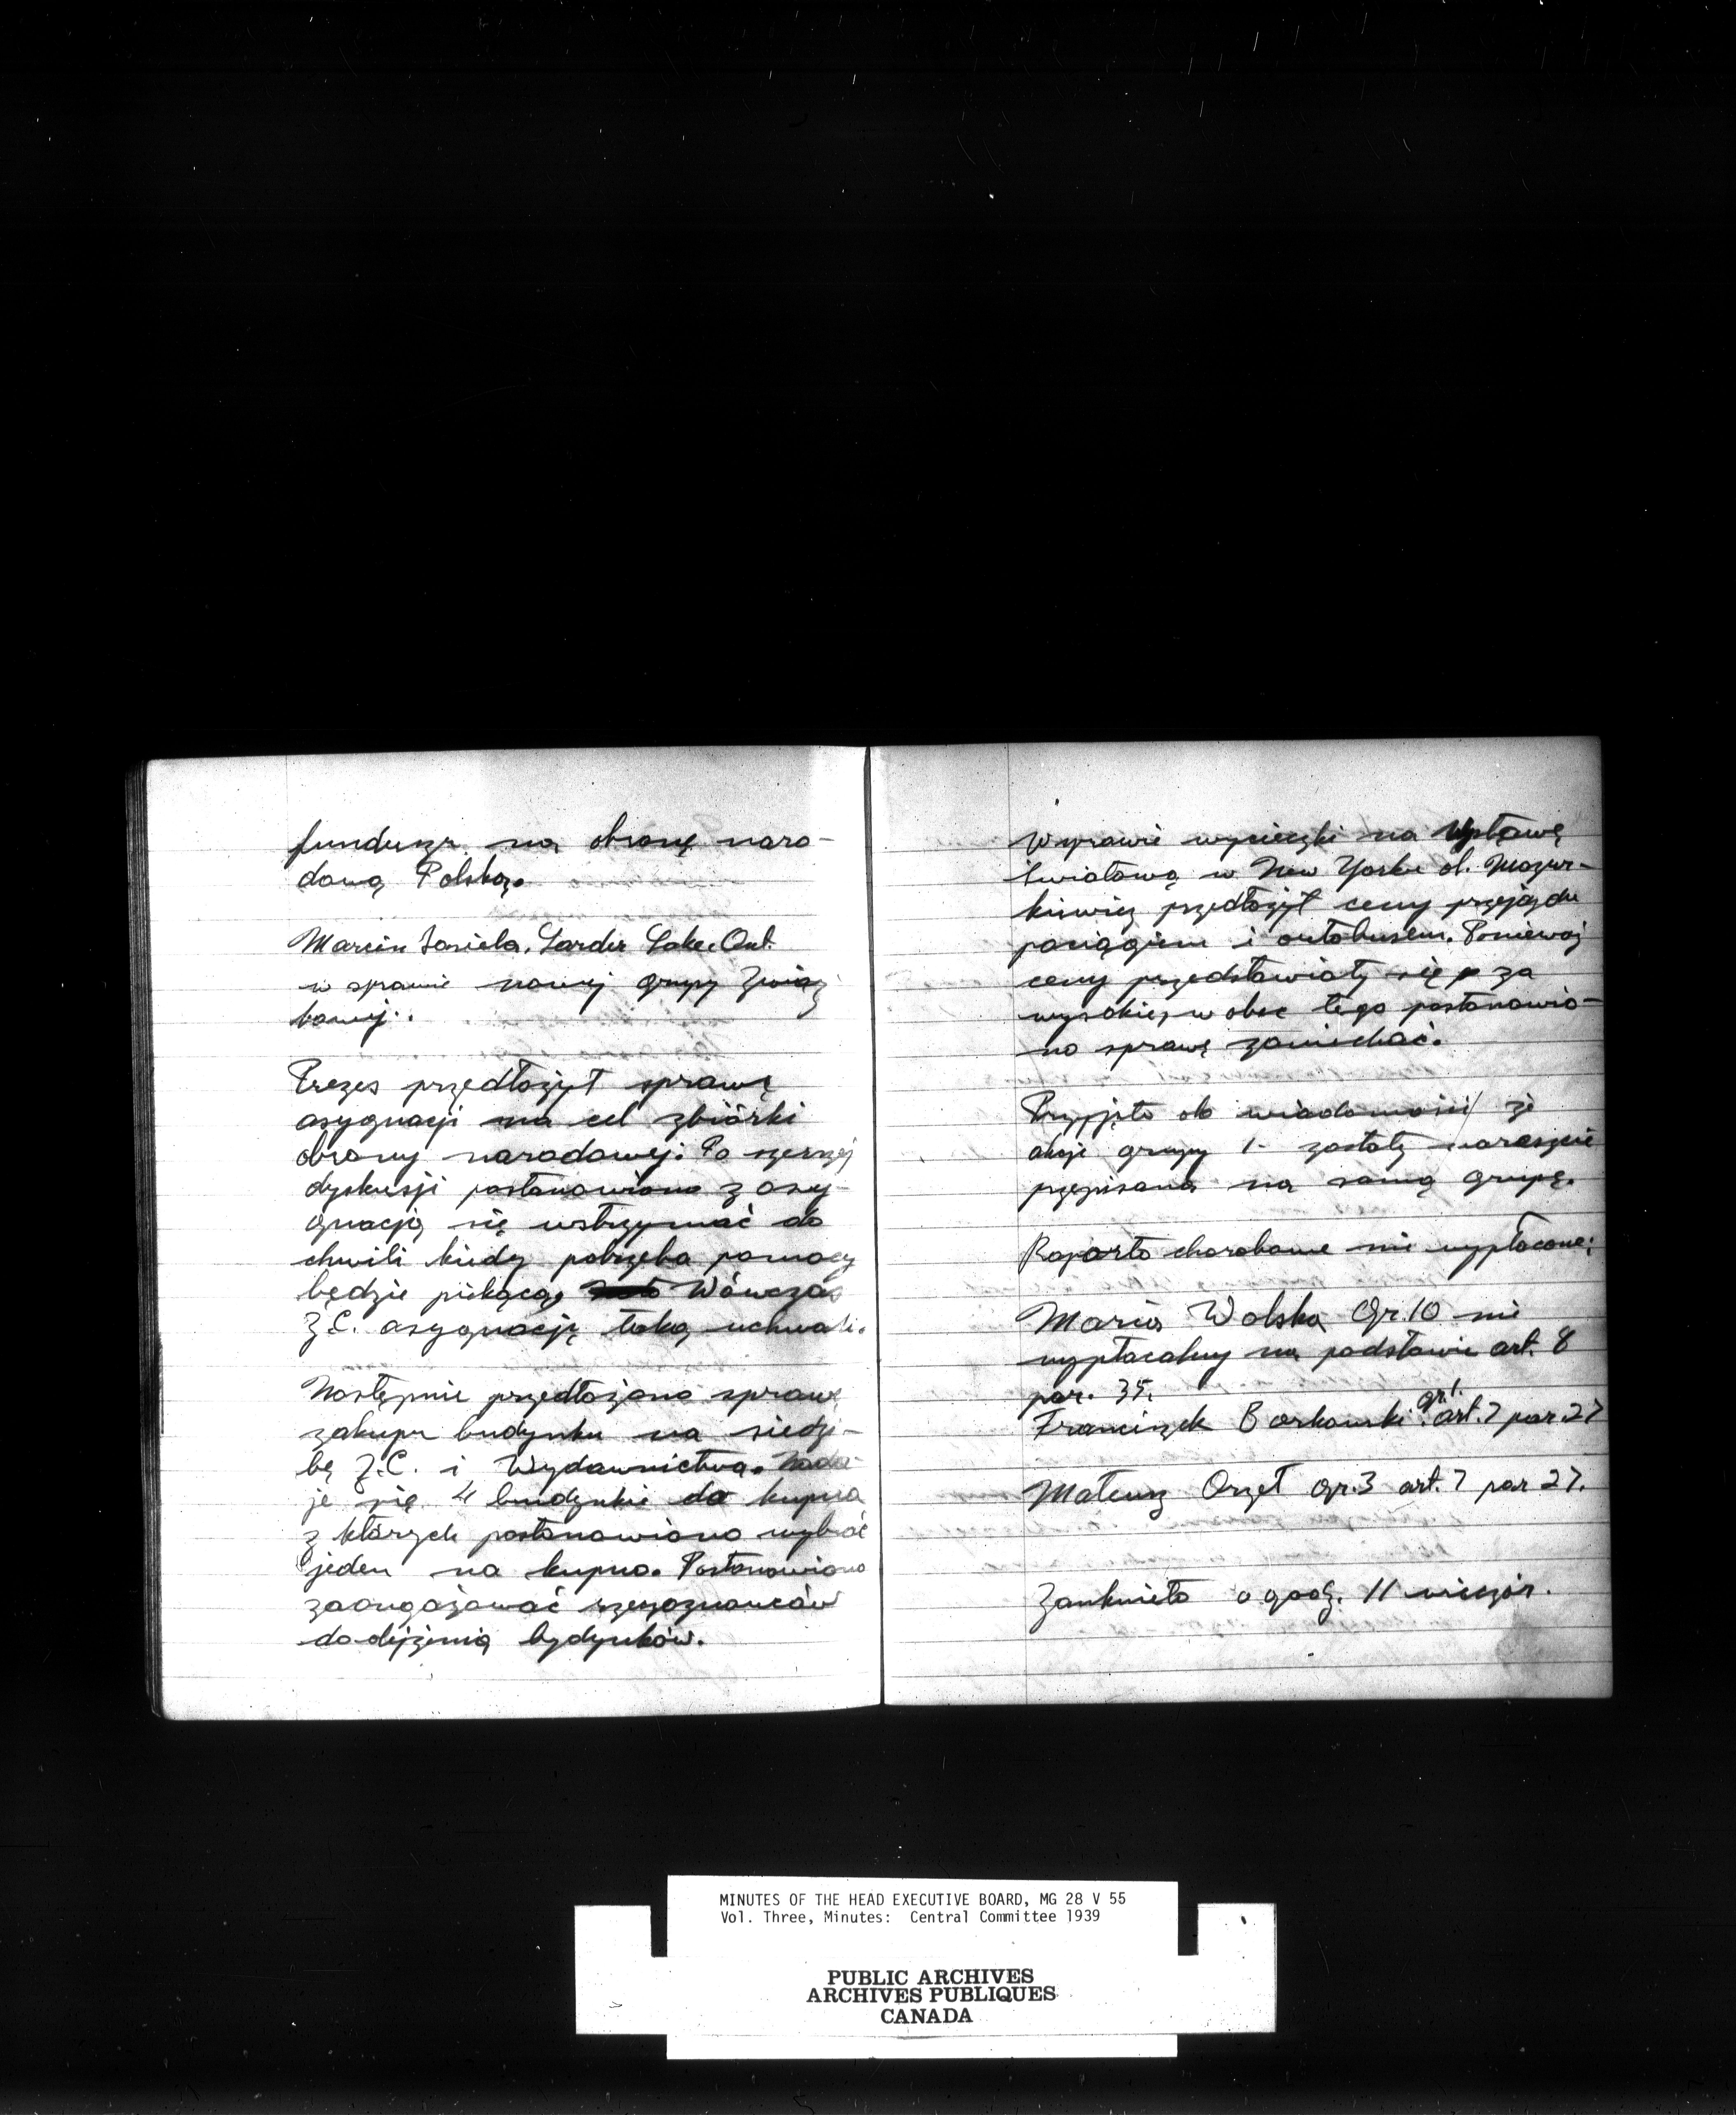 fundusz na obronę naro-
dową Polską.
Marcin Jasiela, Larder Lake, Ont.
w sprawie nowej grupy Związ
kowej.
Prezes przedłożył sprawę
asygnacji na cel zbiórki
obrony narodowej. Po szerszej
dyskusji postanowiono z asy-
gnacją się wstrzymać do
chwili kiedy potrzeba pomocy
będzie piekącą, Wówczas
Z.C. asygnację taką uchwali.
Następnie przedłożono sprawę
zakupu budynku na siedzi-
bę Z.C. i Wydawnictwa. Nada-
je się 4 budynki do kupna
z których postanowiono wybrać
jeden na kupno. Postanowiono
zaangażować rzeczoznawców
do dejżenia bydynków.
W sprawie wycieczki na Wystawę
Światową w New Yorku ob. Mazur-
kiewicz przedłożył ceny przejazdu
pociągiem i autobusem. Ponieważ
ceny przedstawiały się za
wysokie, w obec tego postanowio-
no sprawę zaniechać.
Przyjęto do wiadomości że
akcje grupy 1- zostały nareszcie
przepisana na samą grupę.
Raporta chorobowe nie wypłacone;
Maria Wolska Gr. 10 nie
wypłacalny na podstawie art. 8
par. 35.
Franciszek Borkowski gr. 1. art. 7 par. 27
Mateusz Orzeł gr. 3 art. 7 par 27.
Zamknięto o godz. 11 wieczór.
MINUTES OF THE HEAD EXECUTIVE BOARD, MG 28 V 55
Vol. Three, Minutes: Central Committee 1939
PUBLIC ARCHIVES
ARCHIVES PUBLIQUES
CANADA